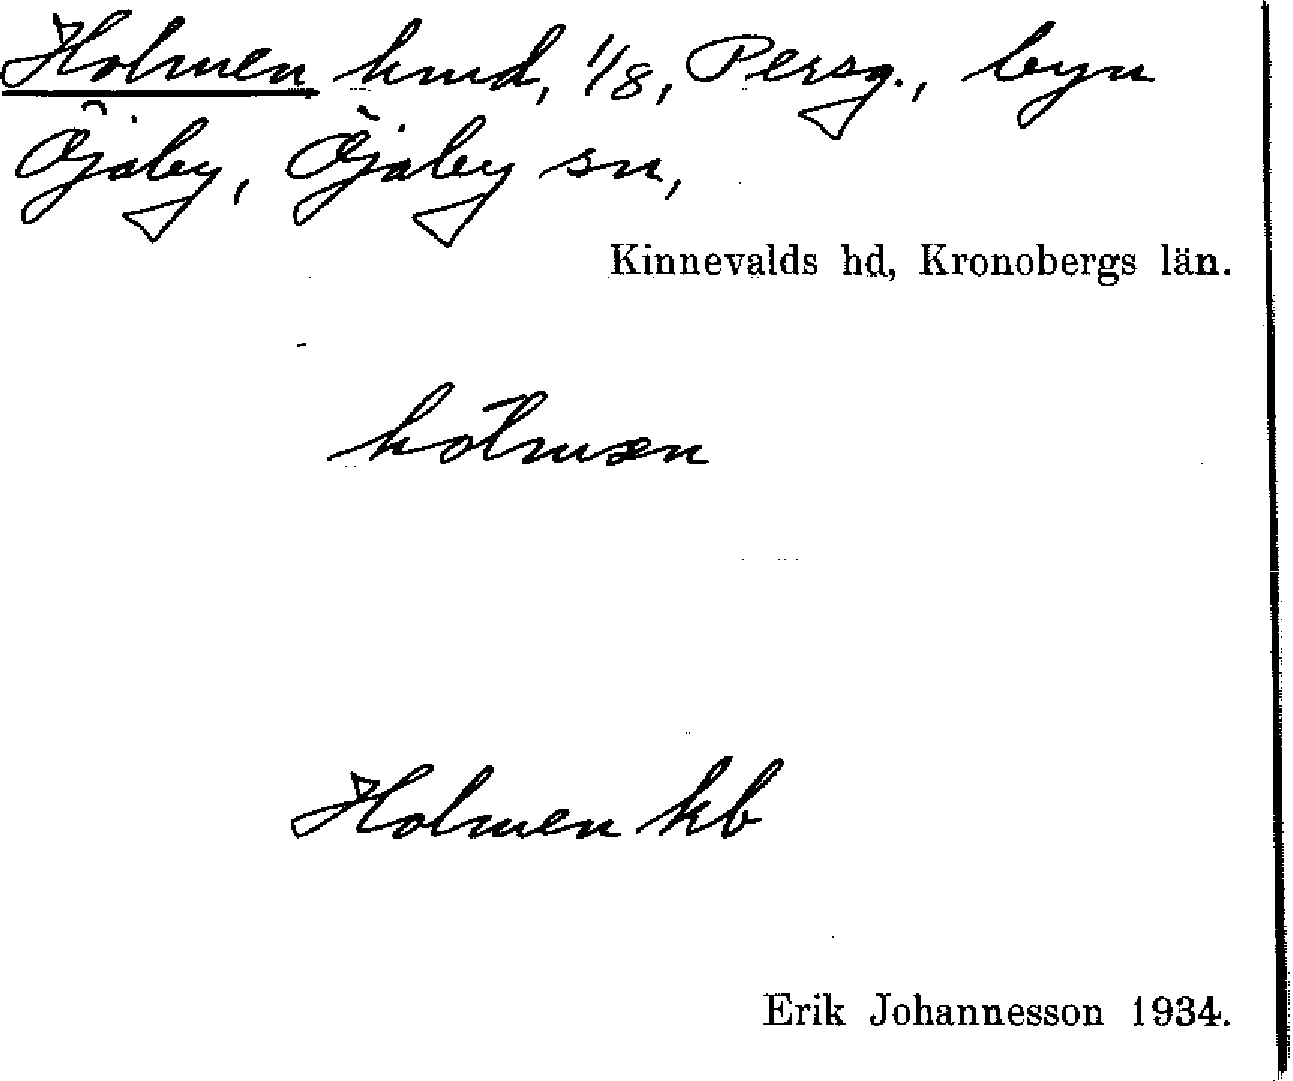 Holmen hmd, 1/8, Persg., byn
Öjaby, Öjaby sn,
Kinnevalds hd, Kronobergs län.
holmæn
Holmen kb
Erik Johannesson 1934.